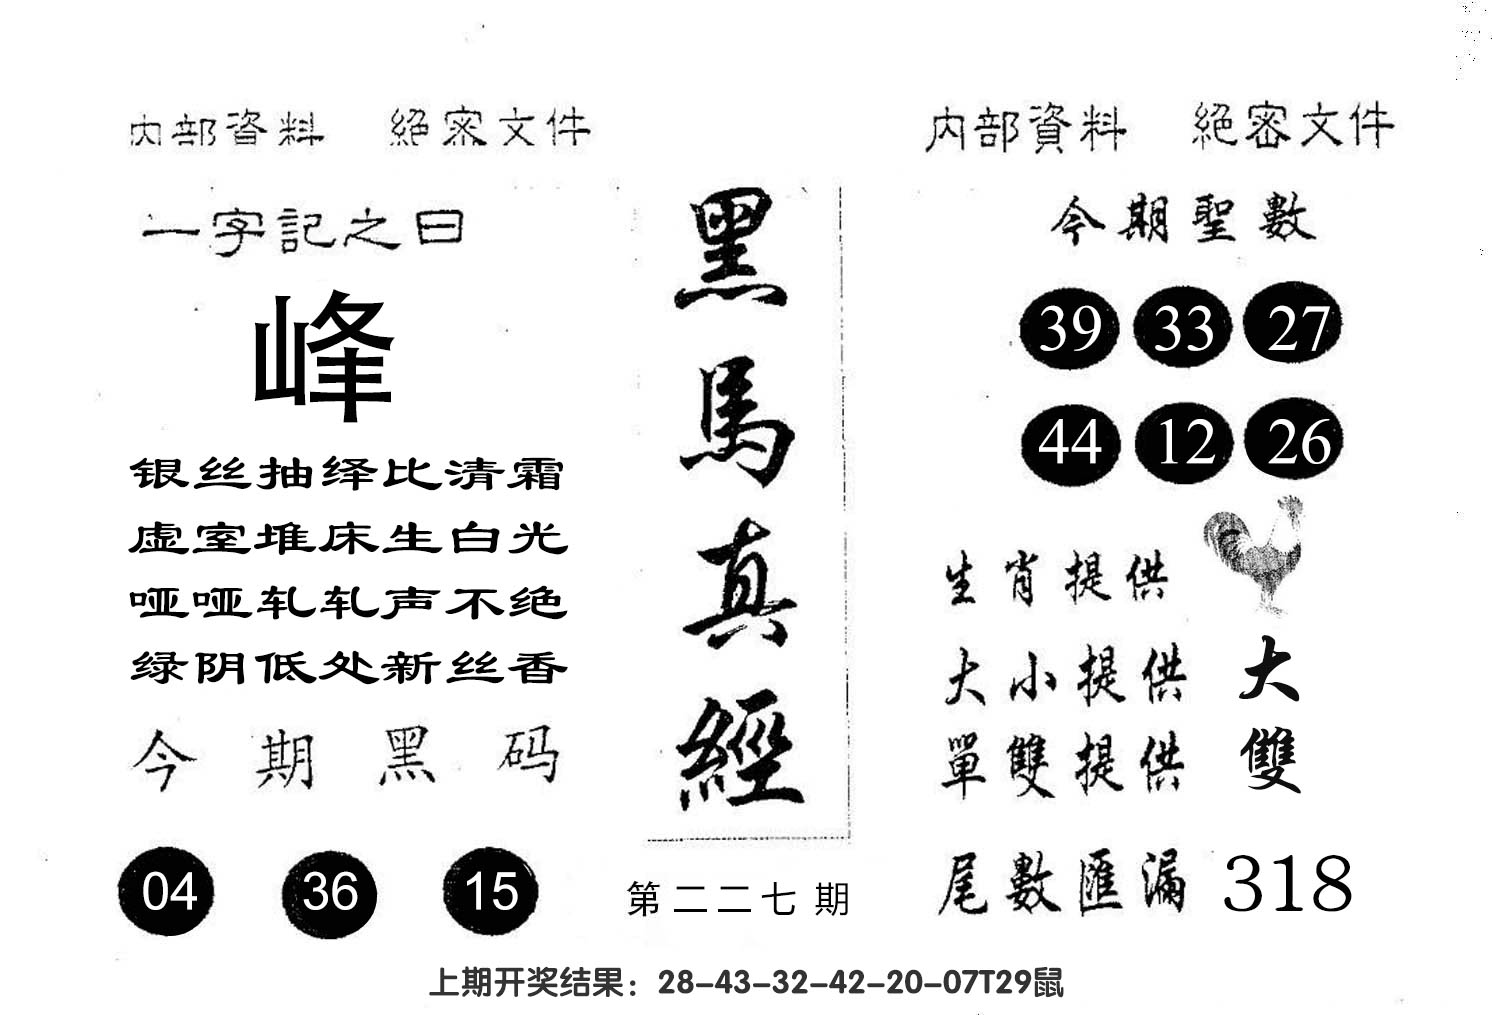 内部資料 絕密文件
一字記之曰
峰
银丝抽绎比清霜
虚室堆床生白光
哑哑轧轧声不绝
绿阴低处新丝香
今期黑码
04 36 15
黑馬真經
第二二七期
内部資料 絕密文件
今期聖數
39 33 27
44 12 26
生肖提供
大小提供 大
單雙提供 雙
尾數匯漏 318
上期开奖结果：28-43-32-42-20-07T29鼠